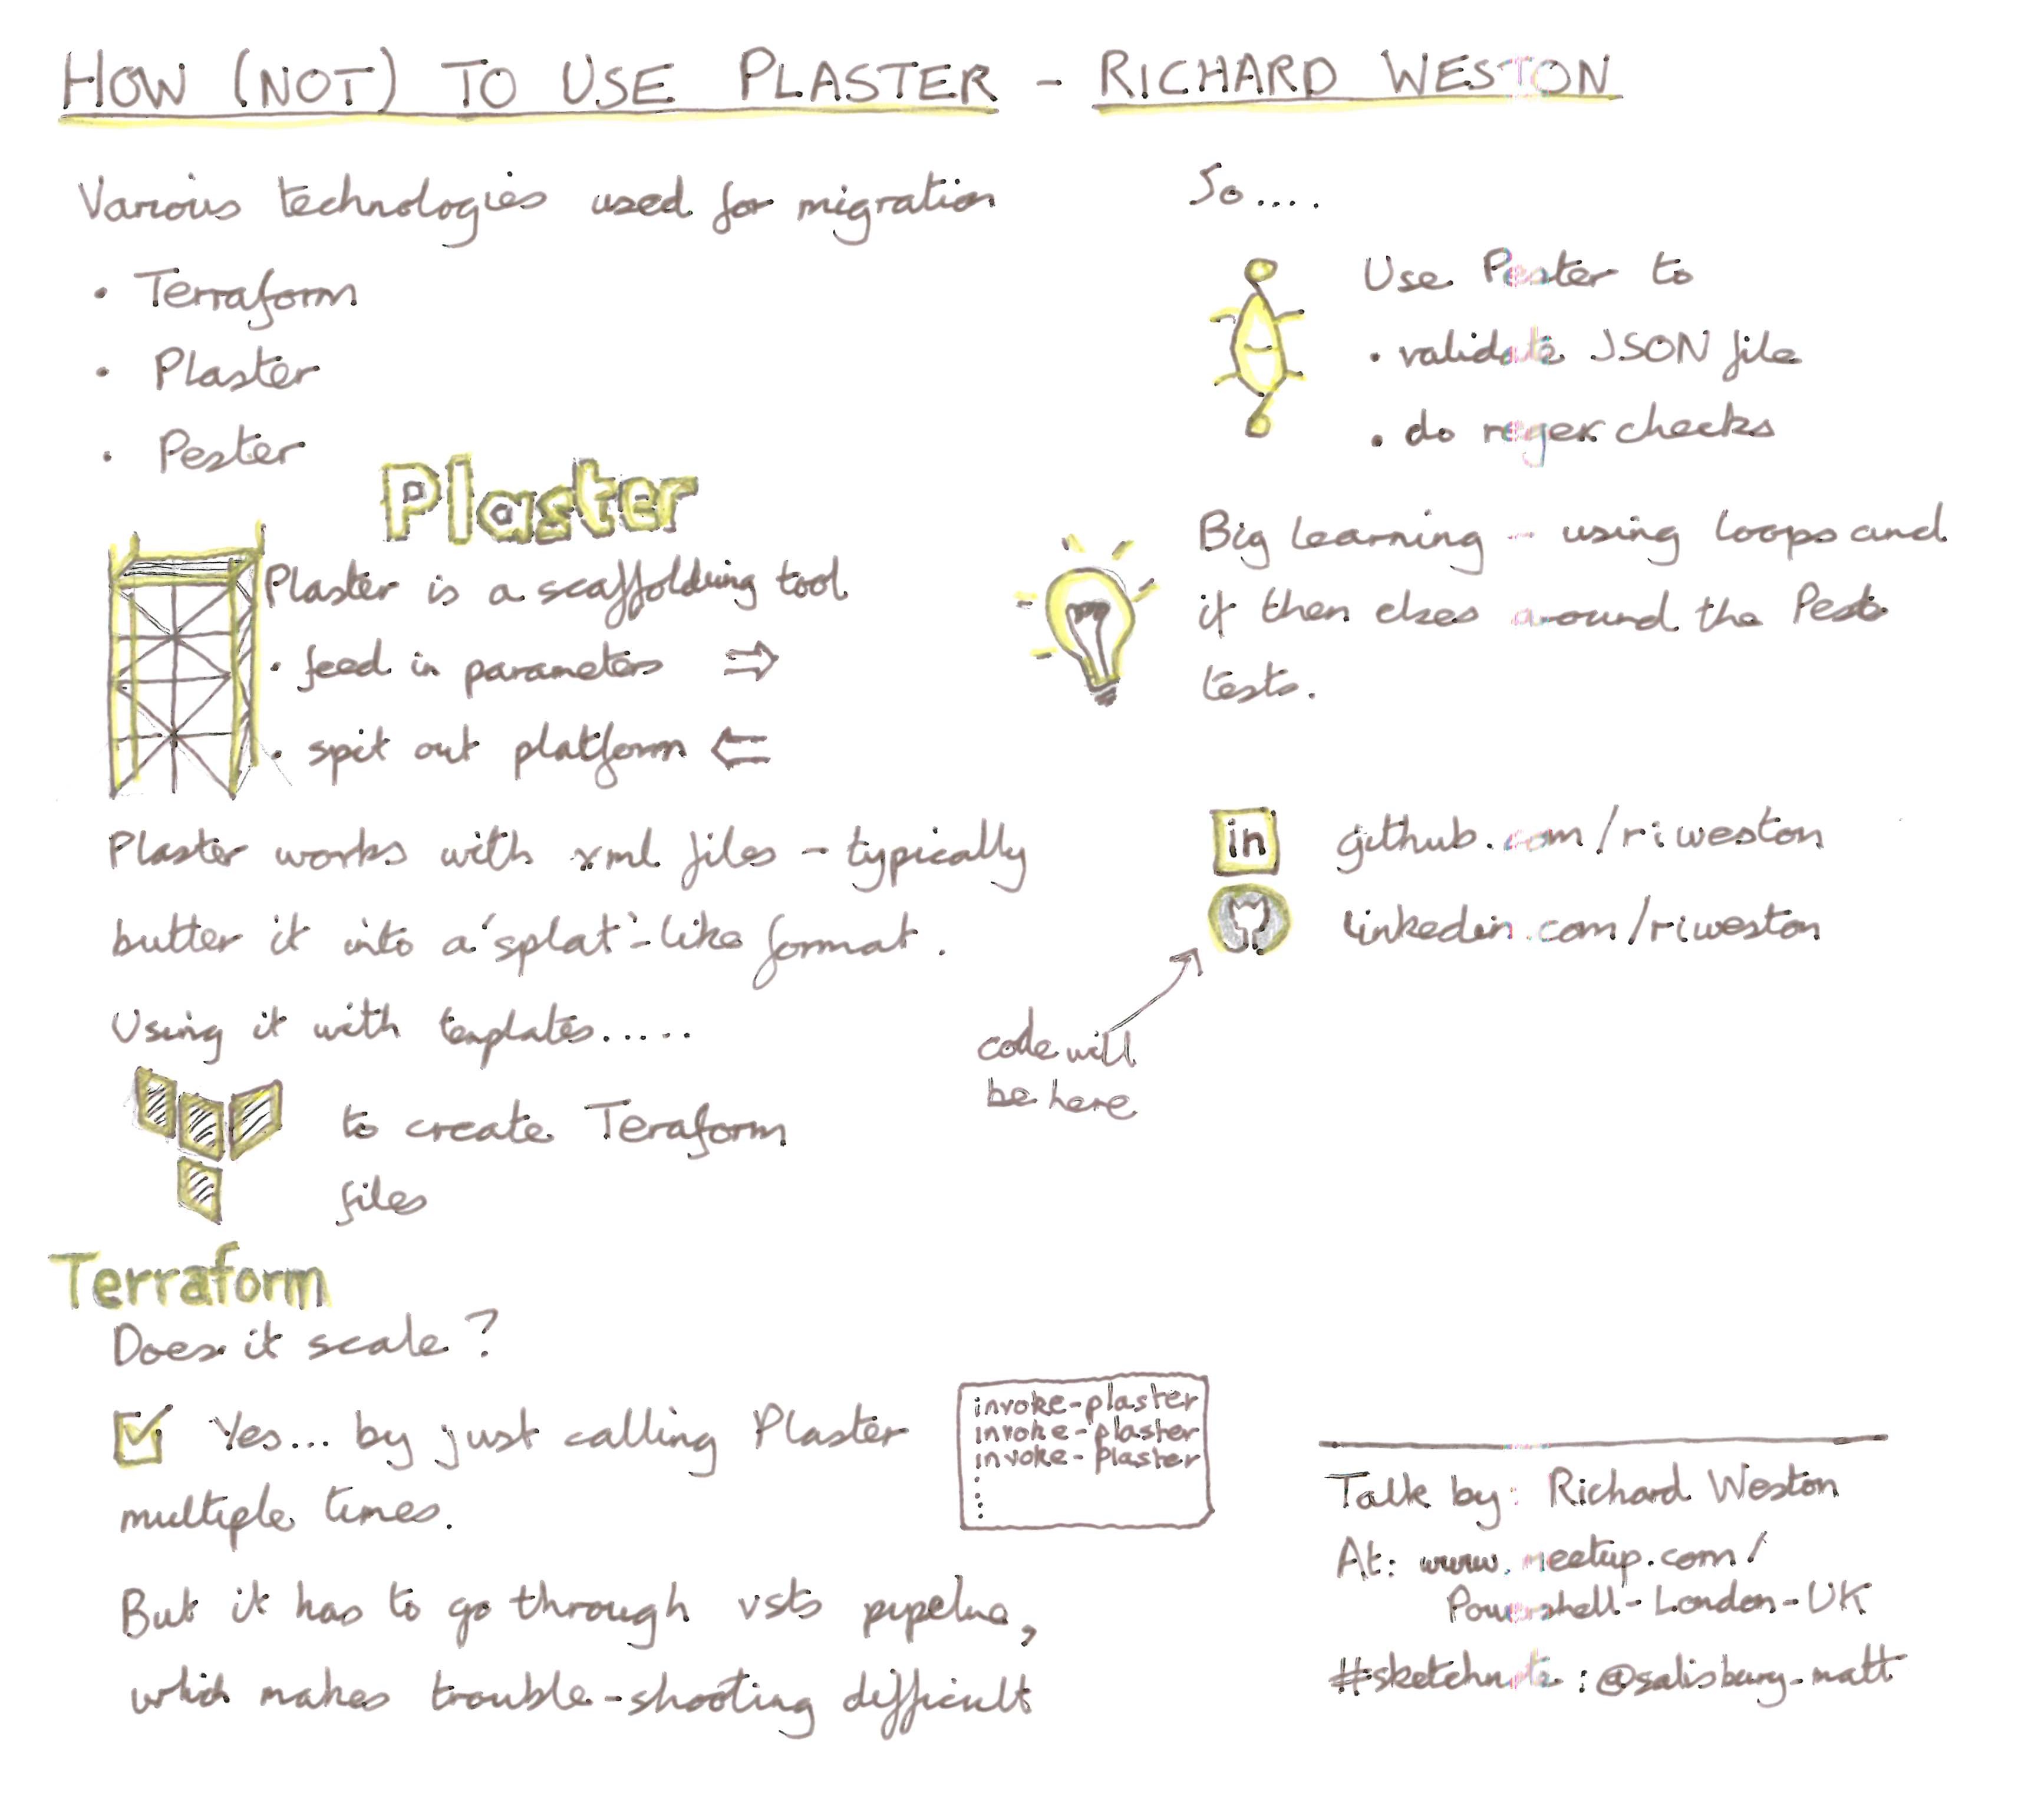 HOW (NOT) TO USE PLASTER - RICHARD WESTON
Various technologies used for migration
• Terraform
• Plaster
• Pester
Plaster
Plaster is a scaffolding tool
• feed in parameters ⇒
• spit out platform ⇐
Plaster works with xml files - typically
butter it into a 'splat'-like format.
Using it with templates......
to create Teraform
files
Terraform
Does it scale?
Yes... by just calling Plaster
multiple times.
invoke-plaster
invoke-plaster
invoke-plaster
But it has to go through vsts pipeline,
which makes trouble-shooting difficult
So....
Use Pester to
• validate JSON file
• do regex checks
Big Learning - using loops and
if then elses around the
tests.
in github.com/riweston
linkedin.com/riweston
code will
be here
Talk by: Richard Weston
At: www.meetup.com/
Powershell-London-UK
#sketchnote: @salisbury_matt